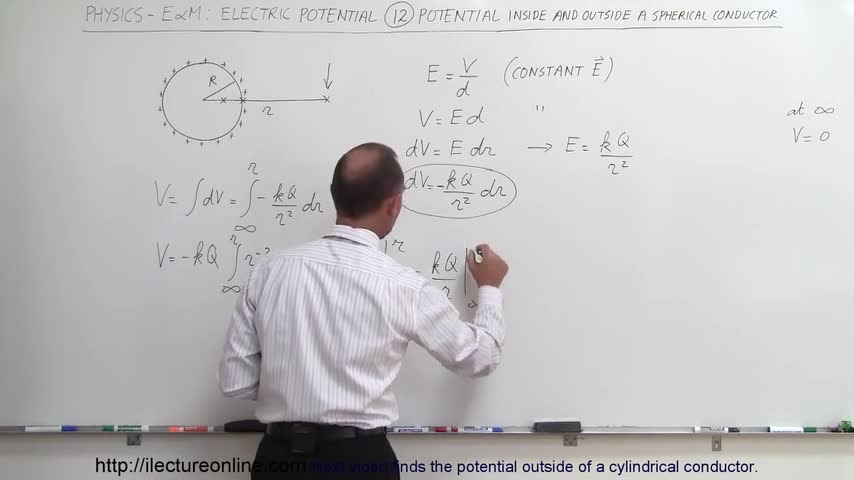 PHYSICS - E&M: ELECTRIC POTENTIAL (12) POTENTIAL INSIDE AND OUTSIDE A SPHERICAL CONDUCTOR
R
r
E = V/d (CONSTANT E⃗)
V = Ed "
dV = E dr → E = kQ/r²
dV = -kQ/r² dr
at ∞
V = 0
V = ∫dV = ∫_∞^r - kQ/r² dr
V = -kQ ∫_∞^r r⁻²
|^r
kQ/r |
http://ilectureonline.com Next video finds the potential outside of a cylindrical conductor.